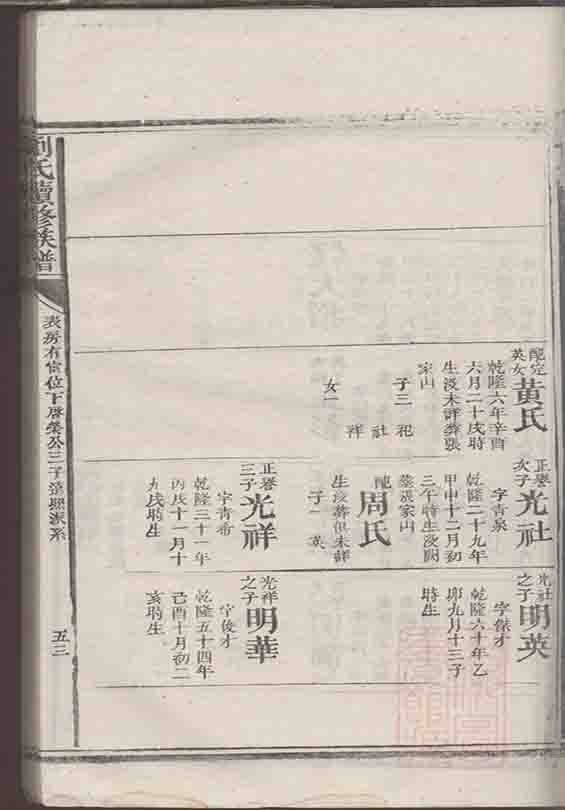 劉氏續修族譜
五三
配定英女黃氏
乾隆六年辛酉
六月二十戌時
生沒未詳葬張
家山
子三 祀
社
祥
女一
正譽次子光社
字青泉
乾隆二十九年
甲申十二月初
三午時生沒闕
墓張家山
配周氏
生沒葬俱未詳
子一 英
正譽三子光祥
字青希
乾隆三十一年
丙戌十一月十
九戌時生
光社之子明英
乾隆六十年乙
卯九月十三子
時生
光祥之子明華
字俊才
乾隆五十四年
己酉十月初二
亥時生